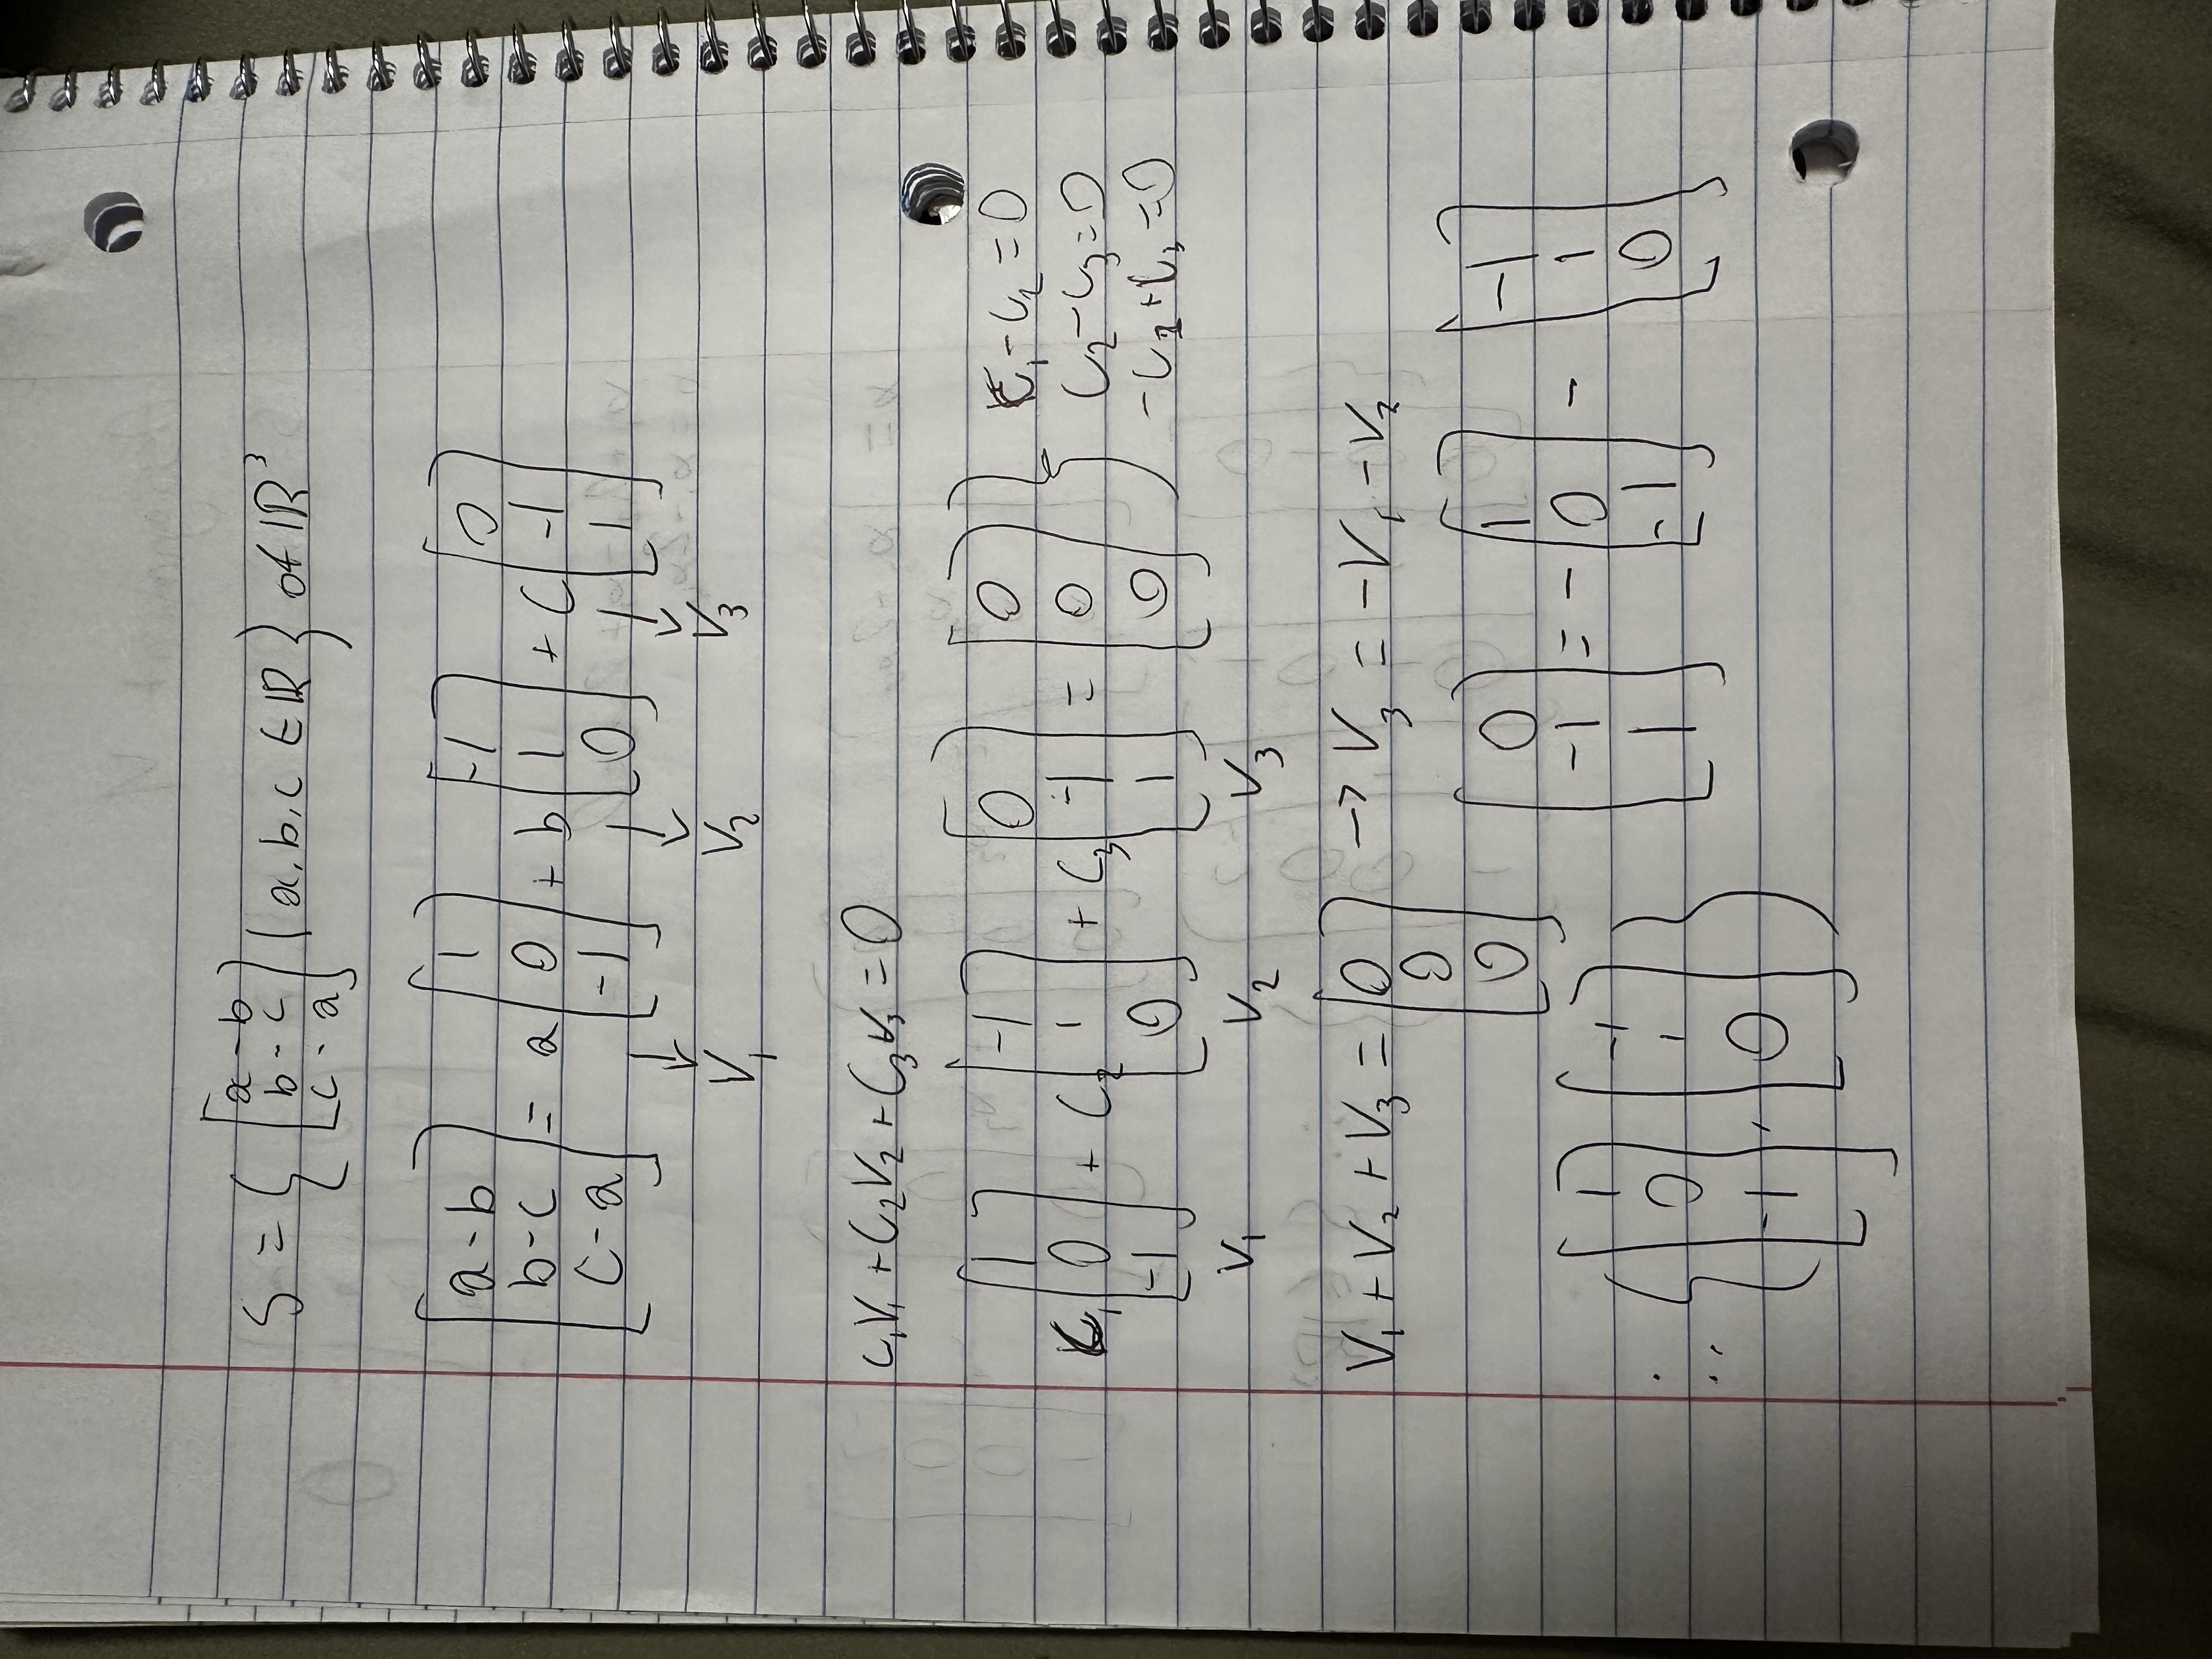 S = { [a - b
b - c
c - a] | a, b, c ∈ ℝ } of ℝ³
[a - b
b - c
c - a] = a [1
0
-1] + b [-1
1
0] + c [0
-1
1]
↓ ↓ ↓
V₁ V₂ V₃
c₁V₁ + c₂V₂ + c₃V₃ = 0
c₁ [1
0
-1] + c₂ [-1
1
0] + c₃ [0
-1
1] = [0
0
0] }
c₁ - c₂ = 0
c₂ - c₃ = 0
-c₁ + c₃ = 0
V₁ V₂ V₃
V₁ + V₂ + V₃ = [0
0
0] → V₃ = -V₁ - V₂
[0
-1
1] = - [1
0
-1] - [-1
1
0]
∴ { [1
0
-1] , [-1
1
0] }